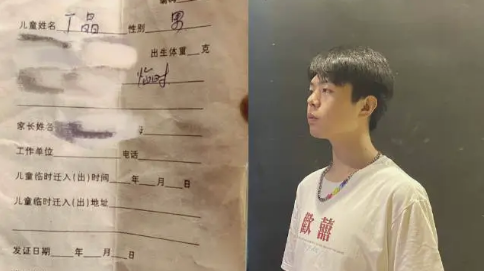 儿童姓名 丁晶 性别 男
出生体重 克
临时
家长姓名
工作单位 电话
儿童临时迁入(出)时间 年 月 日
儿童临时迁入(出)地址
发证日期 年 月 日
歡 囍